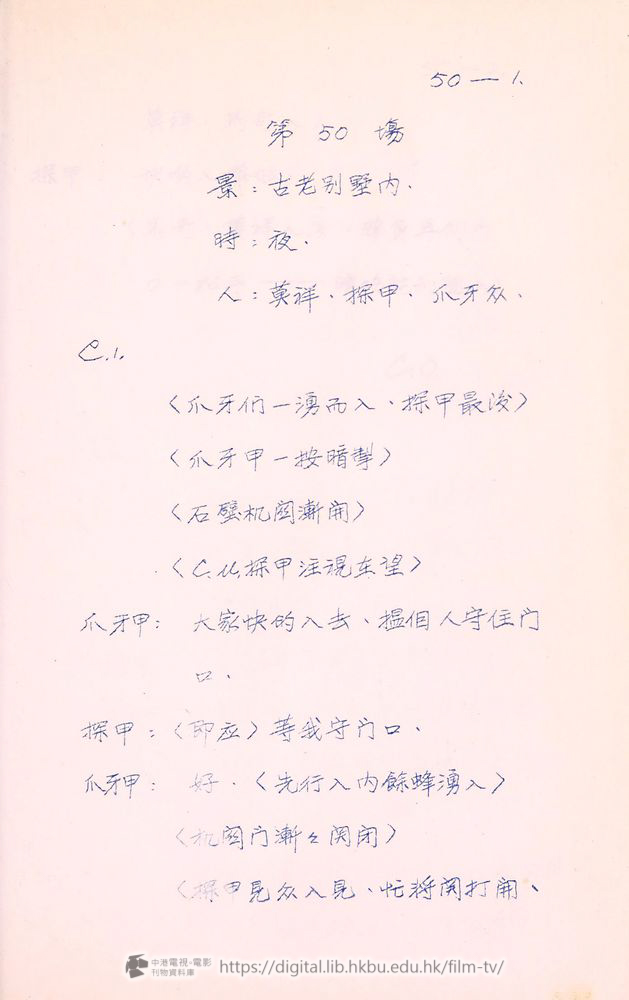 50 — 1.
第 50 場
景：古老別墅内．
時：夜．
人：莫祥、探甲、爪牙众．
C.1.
〈爪牙们一湧而入、探甲最後〉
〈爪牙甲一按暗掣〉
〈石壁机関漸開〉
〈C.U.探甲注視在望〉
爪牙甲：大家快的入去、搵個人守住门
口．
探甲：〈即应〉等我守门口．
爪牙甲：好．〈先行入内餘蜂湧入〉
〈机関门漸々関闭〉
〈探甲見众入見、忙将関打開、
中港電視•電影
刊物資料庫
https://digital.lib.hkbu.edu.hk/film-tv/